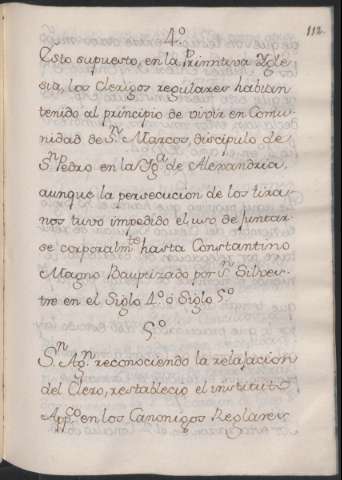 112.
4.º
Esto supuesto, en la Primitiva Ygle
sia, los Clerigos regulares habian
tenido al principio de vivir en Comu
nidad de Sⁿ Marcos, discipulo de
Sⁿ Pedro en la Ygª de Alexandria,
aunque la persecucion de los tira
nos tuvo impedido el uso de juntar
se corporalmᵗᵉ hasta Constantino
Magno Baupizado por Sⁿ Silves
tre en el Siglo 4.º ó Siglo 5.º
5.º
Sⁿ Agⁿ. reconociendo la relajacion
del Clero, restablecio el instituto
App.ᶜᵒ en los Canonigos Reglares